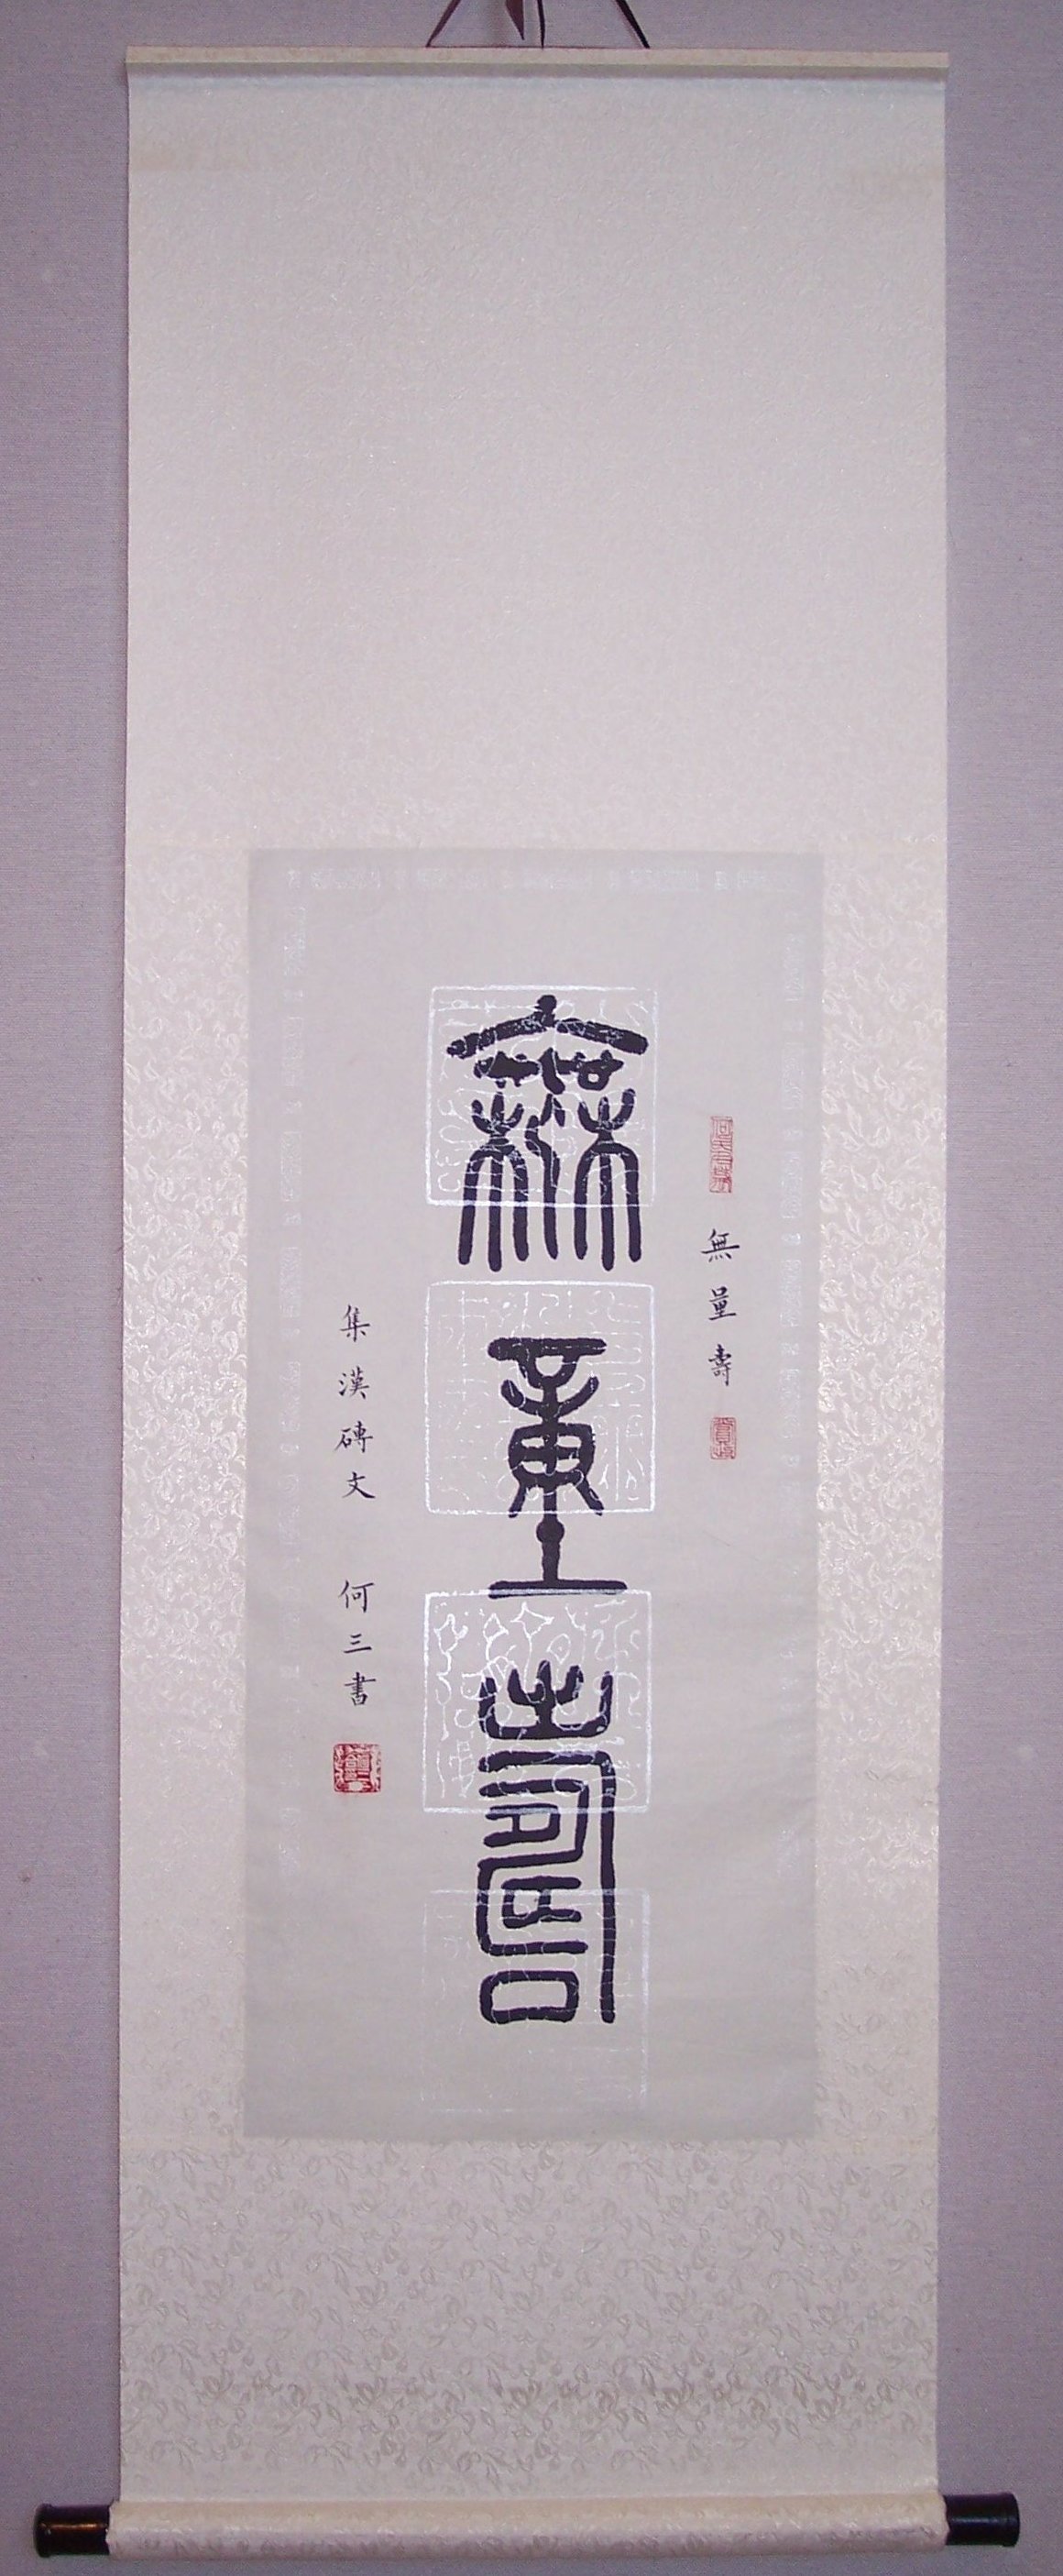 無量壽
無量壽
集漢磚文 何三書